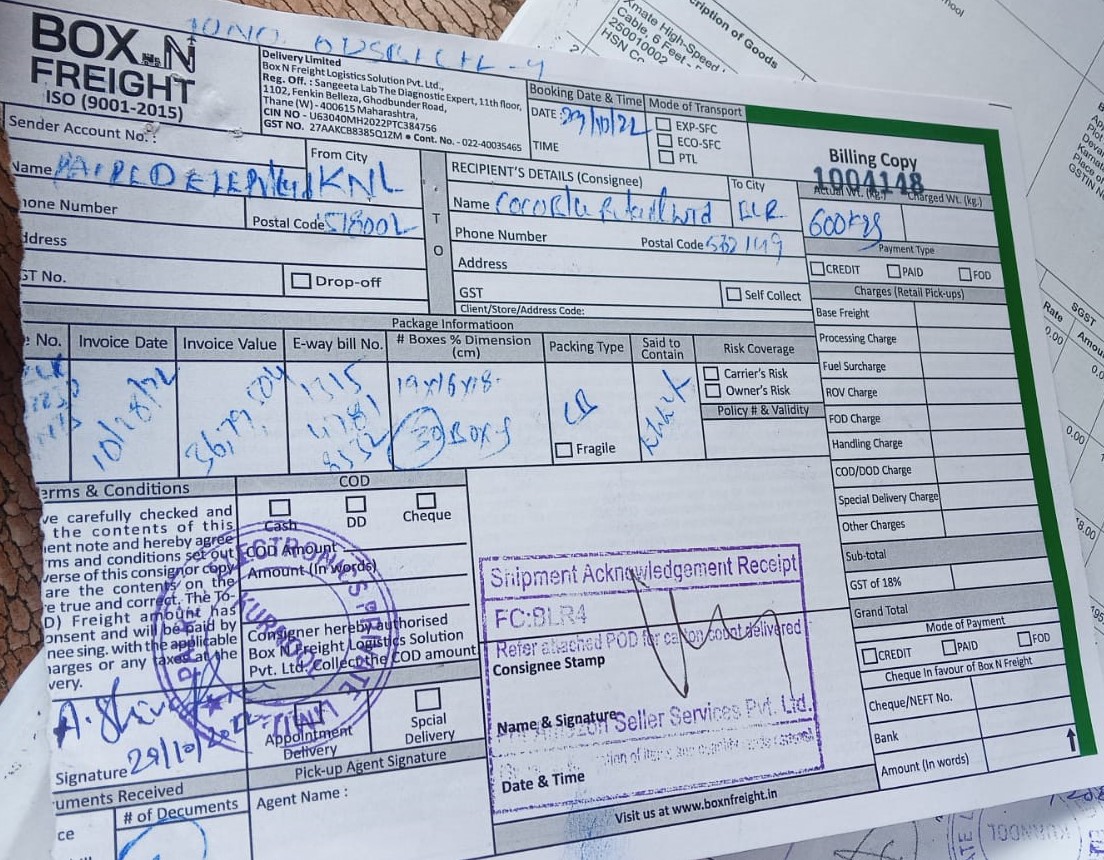 BOX N
FREIGHT
ISO (9001-2015)
Delivery Limited
Box N Freight Logistics Solution Pvt. Ltd.,
Reg. Off. : Sangeeta Lab The Diagnostic Expert, 11th floor,
1102, Fenkin Belleza, Ghodbunder Road,
Thane (W) - 400615 Maharashtra,
CIN NO - U63040MH2022PTC384756
GST NO. 27AAKCB8385Q1ZM • Cont. No. - 022-40035465
Booking Date & Time
DATE 29/10/22
TIME
Mode of Transport
EXP-SFC
ECO-SFC
PTL
Billing Copy
1004148
Sender Account No. :
Name
From City
KNL
Phone Number
Postal Code 518002
ddress
ST No.
Drop-off
T
O
RECIPIENT'S DETAILS (Consignee)
Name
To City
BLR
Phone Number
Postal Code 562149
Address
GST
Self Collect
Client/Store/Address Code:
Actual Wt. (kg.)
Charged Wt. (kg.)
600kgs
Payment Type
CREDIT
PAID
FOD
Charges (Retail Pick-ups)
Base Freight
Processing Charge
Fuel Surcharge
ROV Charge
FOD Charge
Handling Charge
COD/DOD Charge
Special Delivery Charge
Other Charges
Sub-total
GST of 18%
Grand Total
Mode of Payment
CREDIT
PAID
FOD
Cheque In favour of Box N Freight
Cheque/NEFT No.
Bank
Amount (In words)
Package Informatioon
No.
Invoice Date
Invoice Value
E-way bill No.
# Boxes % Dimension
(cm)
Packing Type
Said to
Contain
Risk Coverage
10/28/22
1315
4781
8532
19x16x18
30 Boxs
CB
Fragile
Carrier's Risk
Owner's Risk
Policy # & Validity
erms & Conditions
ve carefully checked and
the contents of this
ent note and hereby agree
ms and conditions set out
verse of this consignor copy
are the contents on the
e true and correct. The To-
D) Freight amount has
onsent and will be paid by
nee sing. with the applicable
harges or any taxes at the
very.
COD
Cash
DD
Cheque
COD Amount
Amount (In words)
Consigner hereby authorised
Box N Freight Logistics Solution
Pvt. Ltd. Collec the COD amount
Appointment
Delivery
Spcial
Delivery
Signature 29/10/2022
Pick-up Agent Signature
Agent Name :
uments Received
# of Documents
ce
Shipment Acknowledgement Receipt
FC:BLR4
Refer attached POD for carton count delivered
Consignee Stamp
Name & Signature
Seller Services Pvt. Ltd.
Date & Time
Visit us at www.boxnfreight.in
ELECTRONICS PRIVATE LIMITED
KURNOOL
cription of Goods
Xmate High-Speed
Cable, 6 Feet -
250010002
HSN Co
SGST
Rate
Amou
0.00
0.00